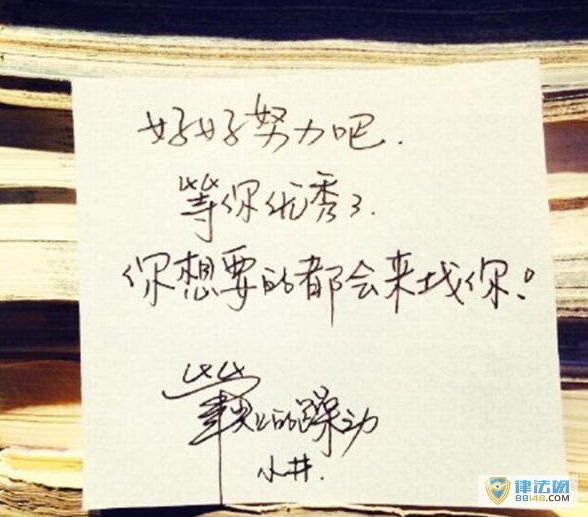 好好努力吧.
等你优秀了.
你想要的都会来找你!
笔尖上的躁动
小井.
律法网
88148.COM